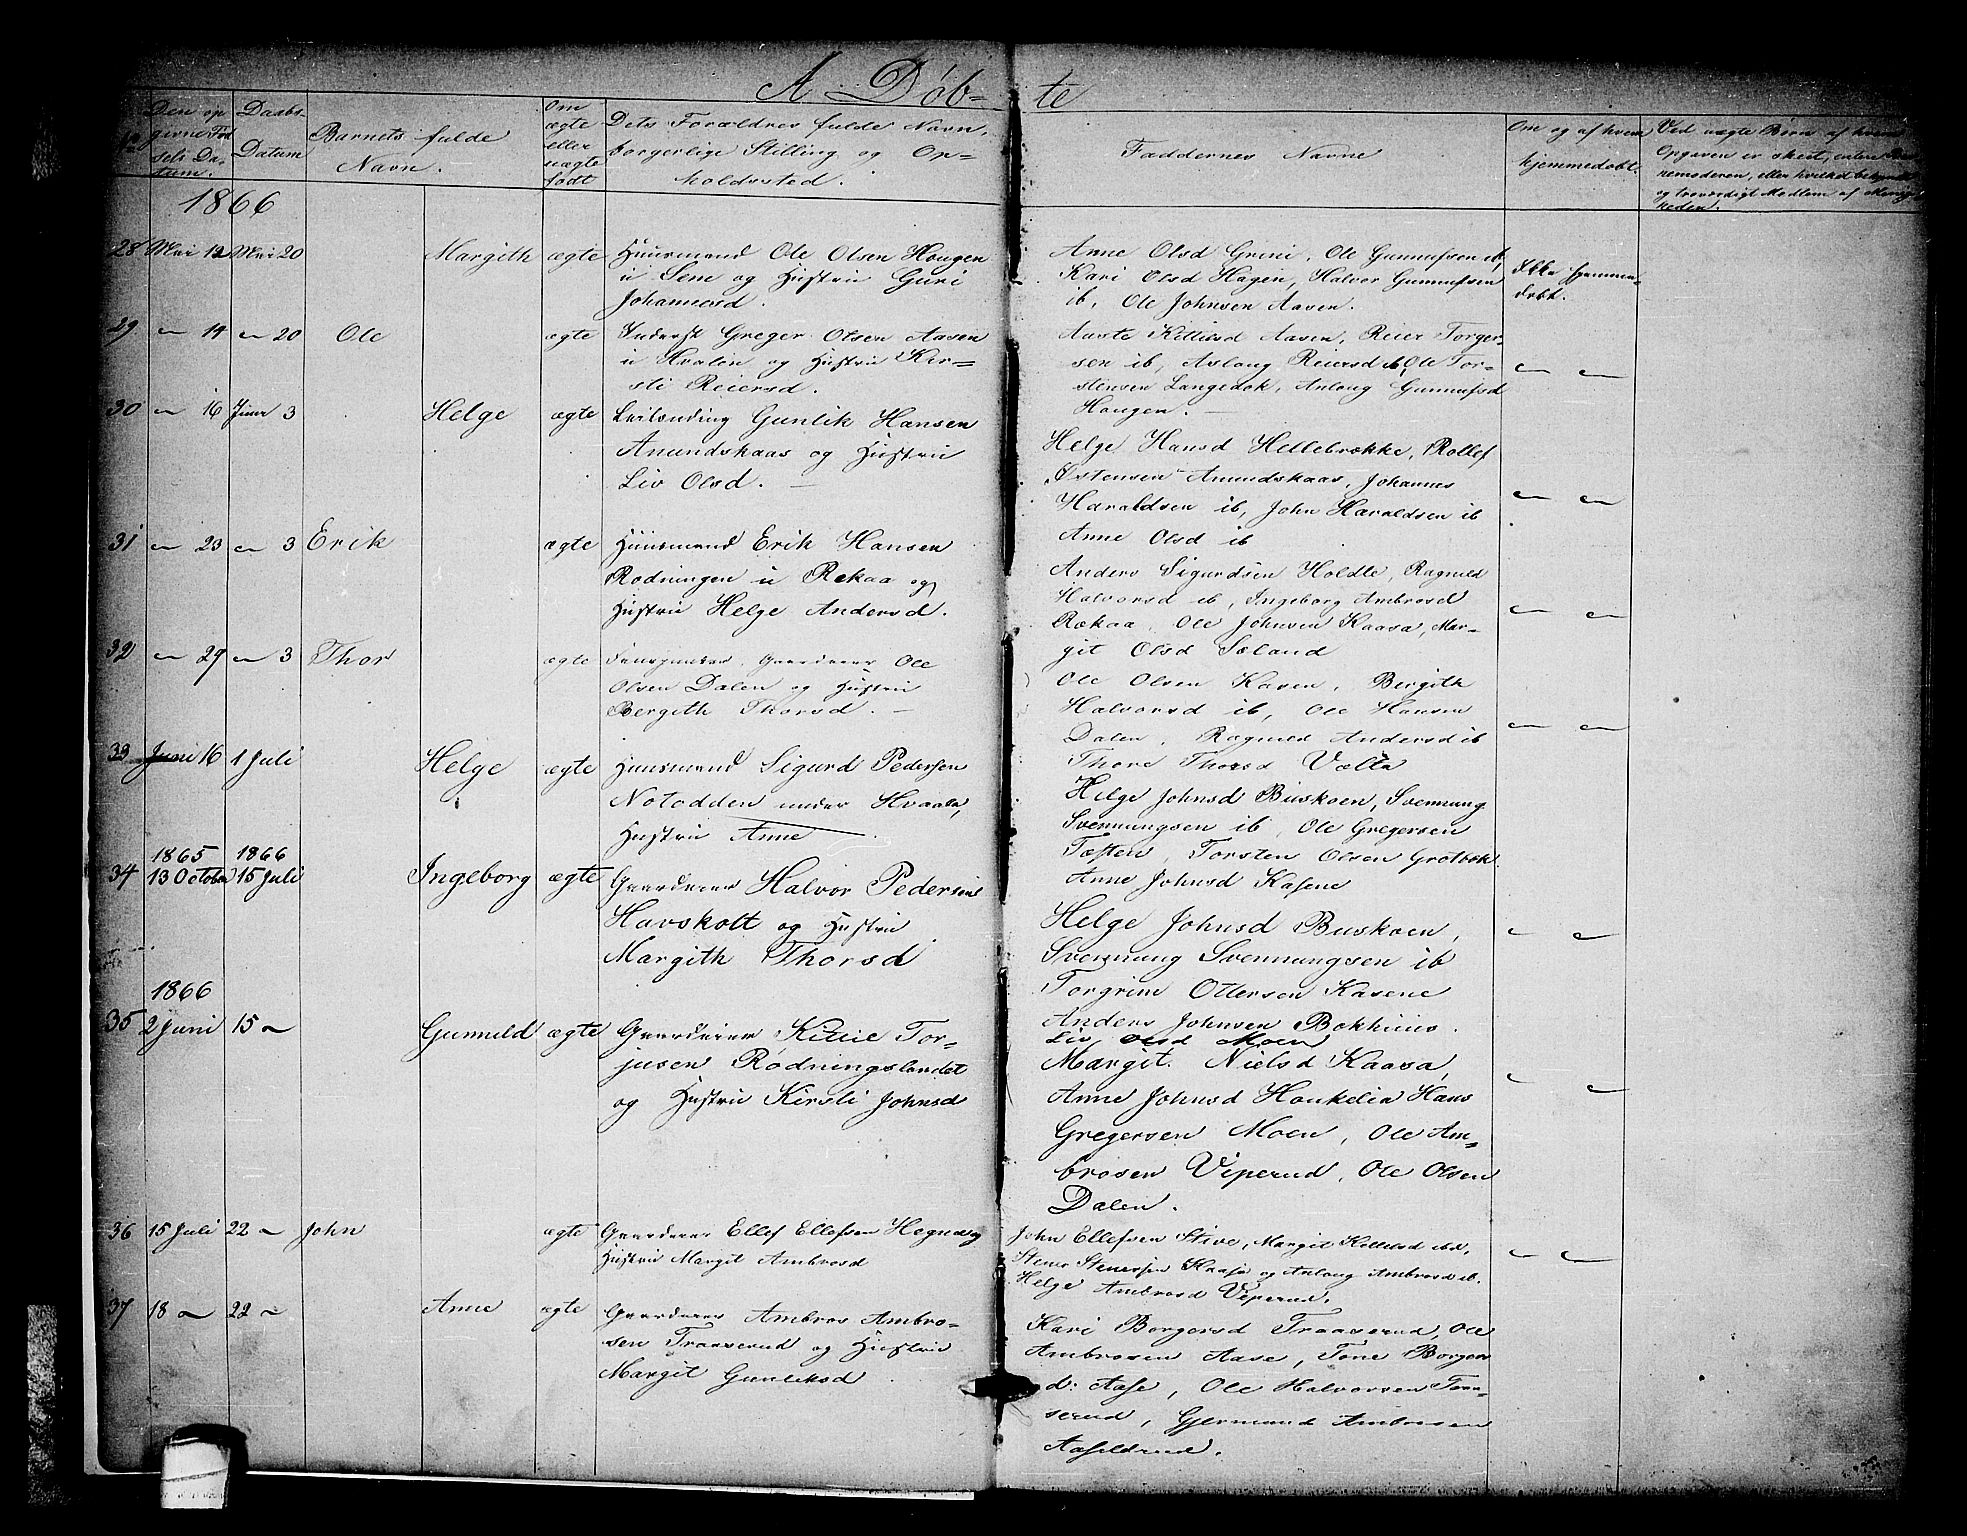 A Døb- te
No
Den op
givne Fød
sels Da-
tum.
Daabs-
Datum
Barnets fulde
Navn.
Om
ægte
eller
uægte
født
Dets Forældres fulde Navn,
borgerlige Stilling og Op-
holdssted.
Faddernes Navne
Om og af hvem
hjemmedøbt.
Ved uægte Børn af hvem
Opgaven er skeet, enten
nemoderen, eller hvilket
og troværdigt Medlem af Menig-
heden.
1866
28 Mai 12 Mai 20 Margith ægte Huusmand Ole Olsen Haugen
u Sem og Hustru Guri
Johannesd.
Anne Olsd Grini, Ole Gunnufsen ib,
Kari Olsd Hagen, Halvor Gunnufsen
ib, Ole Johnsen Aasen.
Ikke hjemme-
døbt.
29 " 14 " 20 Ole ægte Inderst Greger Olsen Aasen
u Hvalen og Hustru Kir-
sti Reiersd.
Aaste Kittilsd Aasen, Reier Torger-
sen ib, Aslaug Reiersd ib, Ole Tor-
stensen Langedok, Anlaug Gunnufsd
Haugen.
" "
30 " 16 Juni 3 Helge ægte Leilending Gunlik Hansen
Amundskaas og Hustru
Liv Olsd.
Helge Hansd Hellebrække, Rollef
Østensen Amundskaas, Johannes
Haraldsen ib, John Haraldsen ib
Anne Olsd ib
" "
31 " 23 " 3 Erik ægte Huusmand Erik Hansen
Rødningen u Rekaa og
Hustru Helge Andersd.
Anders Sigurdsen Holdte, Ragnild
Halvorsd ib, Ingeborg Ambrosd
Rekaa, Ole Johnsen Kaasa, Mar-
git Olsd Sæland
" "
32 " 29 " 3 Thor ægte Gaardeier Ole
Olsen Dalen og Hustru
Bergith Thorsd.
Ole Olsen Kaven, Bergith
Halvorsd ib, Ole Hansen
Dalen, Ragnild Andersd ib
Thore Thorsd Vælta
" "
33 Juni 16 1 Juli Helge ægte Huusmand Sigurd Pedersen
Notodden under Hvaala,
Hustru Anne
Helge Johnsd Buskoen, Svennung
Svennungsen ib, Ole Gregersen
Tæften, Torsten Olsen Grotbæk
Anne Johnsd Kasene
1865 1866
34 13 October 15 Juli Ingeborg ægte Gaardeier Halvor Pedersen
Havskott og Hustru
Margith Thorsd
Helge Johnsd Buskoen,
Svennung Svennungsen ib
Torgrim Ottersen Kasene
Anders Johnsen Bokhuus.
Liv Olsd Moen
" "
1866
35 2 Juni 15 " Gunnild ægte Gaardeier Kittil Tor-
jusen Rødningslandet
og Hustru Kirsti Johnsd
Margit Nielsd Kaasa,
Anne Johnsd Haukelia Hans
Gregersen Moen, Ole Am-
brosen Viperud, Ole Olsen
Dalen.
" "
36 15 Juli 22 " John ægte Gaardeier Ellef Ellefsen Hegna og
Hustru Margit Ambrosd
John Ellefsen Stive, Margit Kittilsd ibd,
Stener Stenersen Kaasa og Anlaug Ambrosd ib.
Helge Ambrosd Viperud.
" "
37 18 " 22 " Anne ægte Gaardeier Ambros Ambro-
sen Traaserud og Hustru
Margit Gunliksd
Kari Borgersd Traaserud, Ole
Ambrosen Aase, Tone Borgers
d: Aase, Ole Halvorsen Traa-
serud, Gjermund Ambrosen
Aaseldrud.